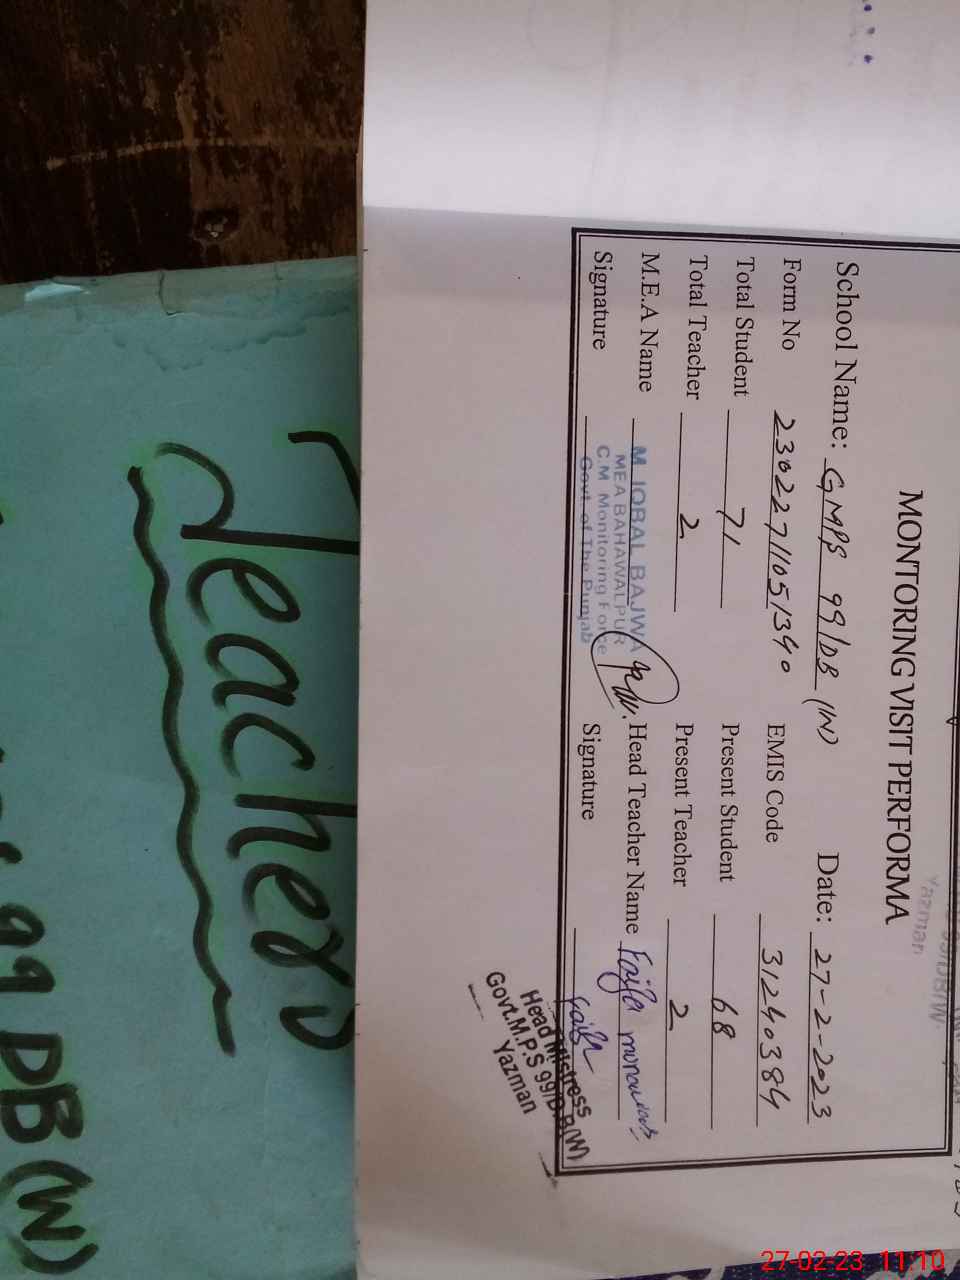 MONTORING VISIT PERFORMA
School Name: GMPS 99/DB (W) Date: 27-2-2023
Form No 23022711051340 EMIS Code 31240384
Total Student 71 Present Student 68
Total Teacher 2 Present Teacher 2
M.E.A Name M IQBAL BAJWA Head Teacher Name Faiza
MEA BAHAWALPUR
C.M Monitoring Force
Govt. of The Punjab
Signature Signature Faiza
Head Mistress
Govt.M.P.S 99/D.B(W)
Yazman
Yazman
Teachers
99 DB (W)
27-02-23 11:10